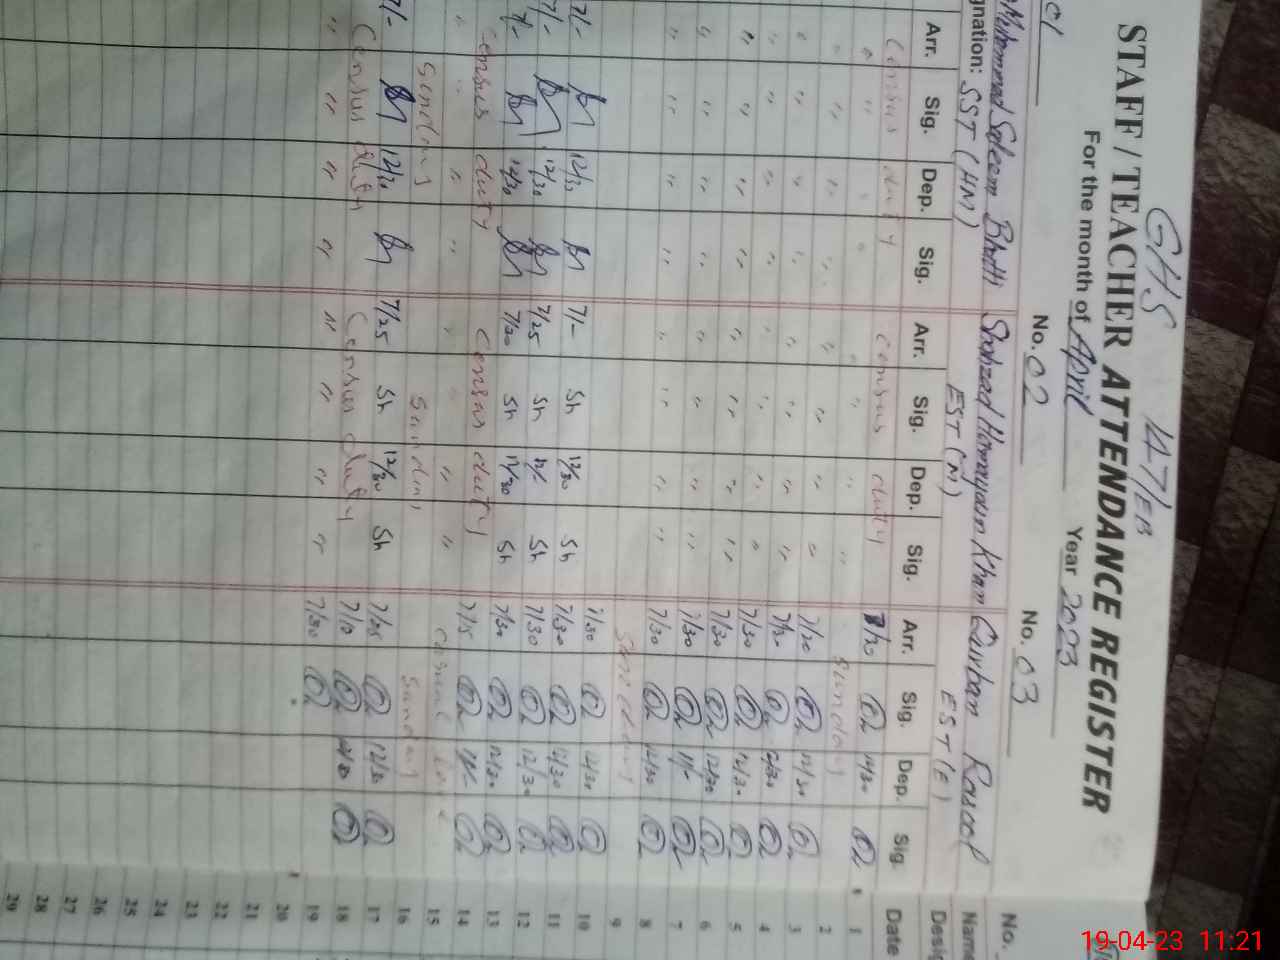 GHS 47/EB
STAFF / TEACHER ATTENDANCE REGISTER
For the month of April Year 2023
No. 02 No. 03 No.
Muhammad Saleem Bhatti Shahzad Hamayoun Khan Qurban Rasool Name
gnation: SST (HM) EST (M) EST (E) Desig
Arr. Sig. Dep. Sig. Arr. Sig. Dep. Sig. Arr. Sig. Dep. Sig. Date
Census duty Census duty 7/30 12/30 1
" " " " " " " " Sunday 2
" " " " " " " " 7/30 12/30 3
" " " " " " " " 7/30 12/30 4
" " " " " " " " 7/30 12/30 5
" " " " " " " " 7/30 12/30 6
" " " " " " " " 7/30 11/- 7
" " " " " " " " 7/30 12/30 8
Sunday 9
7/- 12/30 7/- Sh 12/30 Sh 7/30 12/30 10
7/- 12/30 7/25 Sh 12/- Sh 7/30 12/30 11
7/- 12/30 7/20 Sh 12/30 Sh 7/30 12/30 12
Census duty Census duty 7/30 12/30 13
" " " " " " 7/15 11/- 14
Casual 15
Sunday Sunday Sunday 16
7/- 12/30 7/25 Sh 12/30 Sh 7/25 12/30 17
Census duty Census duty 7/10 12/30 18
" " " " " " " " 7/30 19
20
21
22
23
24
25
26
27
28
29
19-04-23 11:21